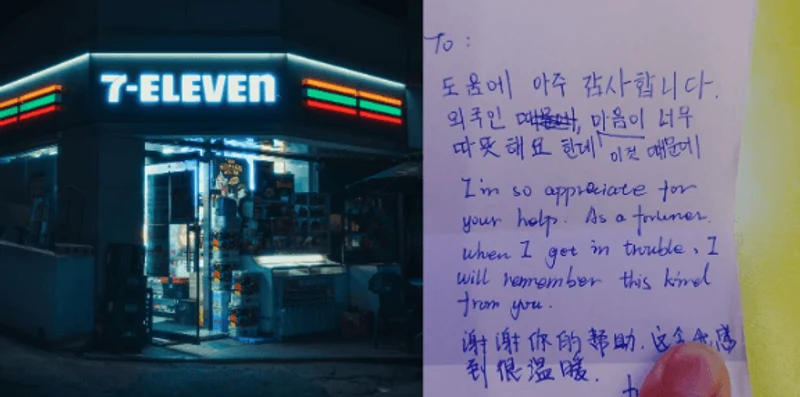 7-ELEVEN
To:
도움에 아주 감사합니다.
외국인 때문에, 마음이 너무
따뜻해요 한테 이것 때문에
I'm so appreciate for
your help. As a foruner.
when I get in trouble, I
will remember this kind
from you.
谢谢你的帮助. 这令我感
到很温暖.